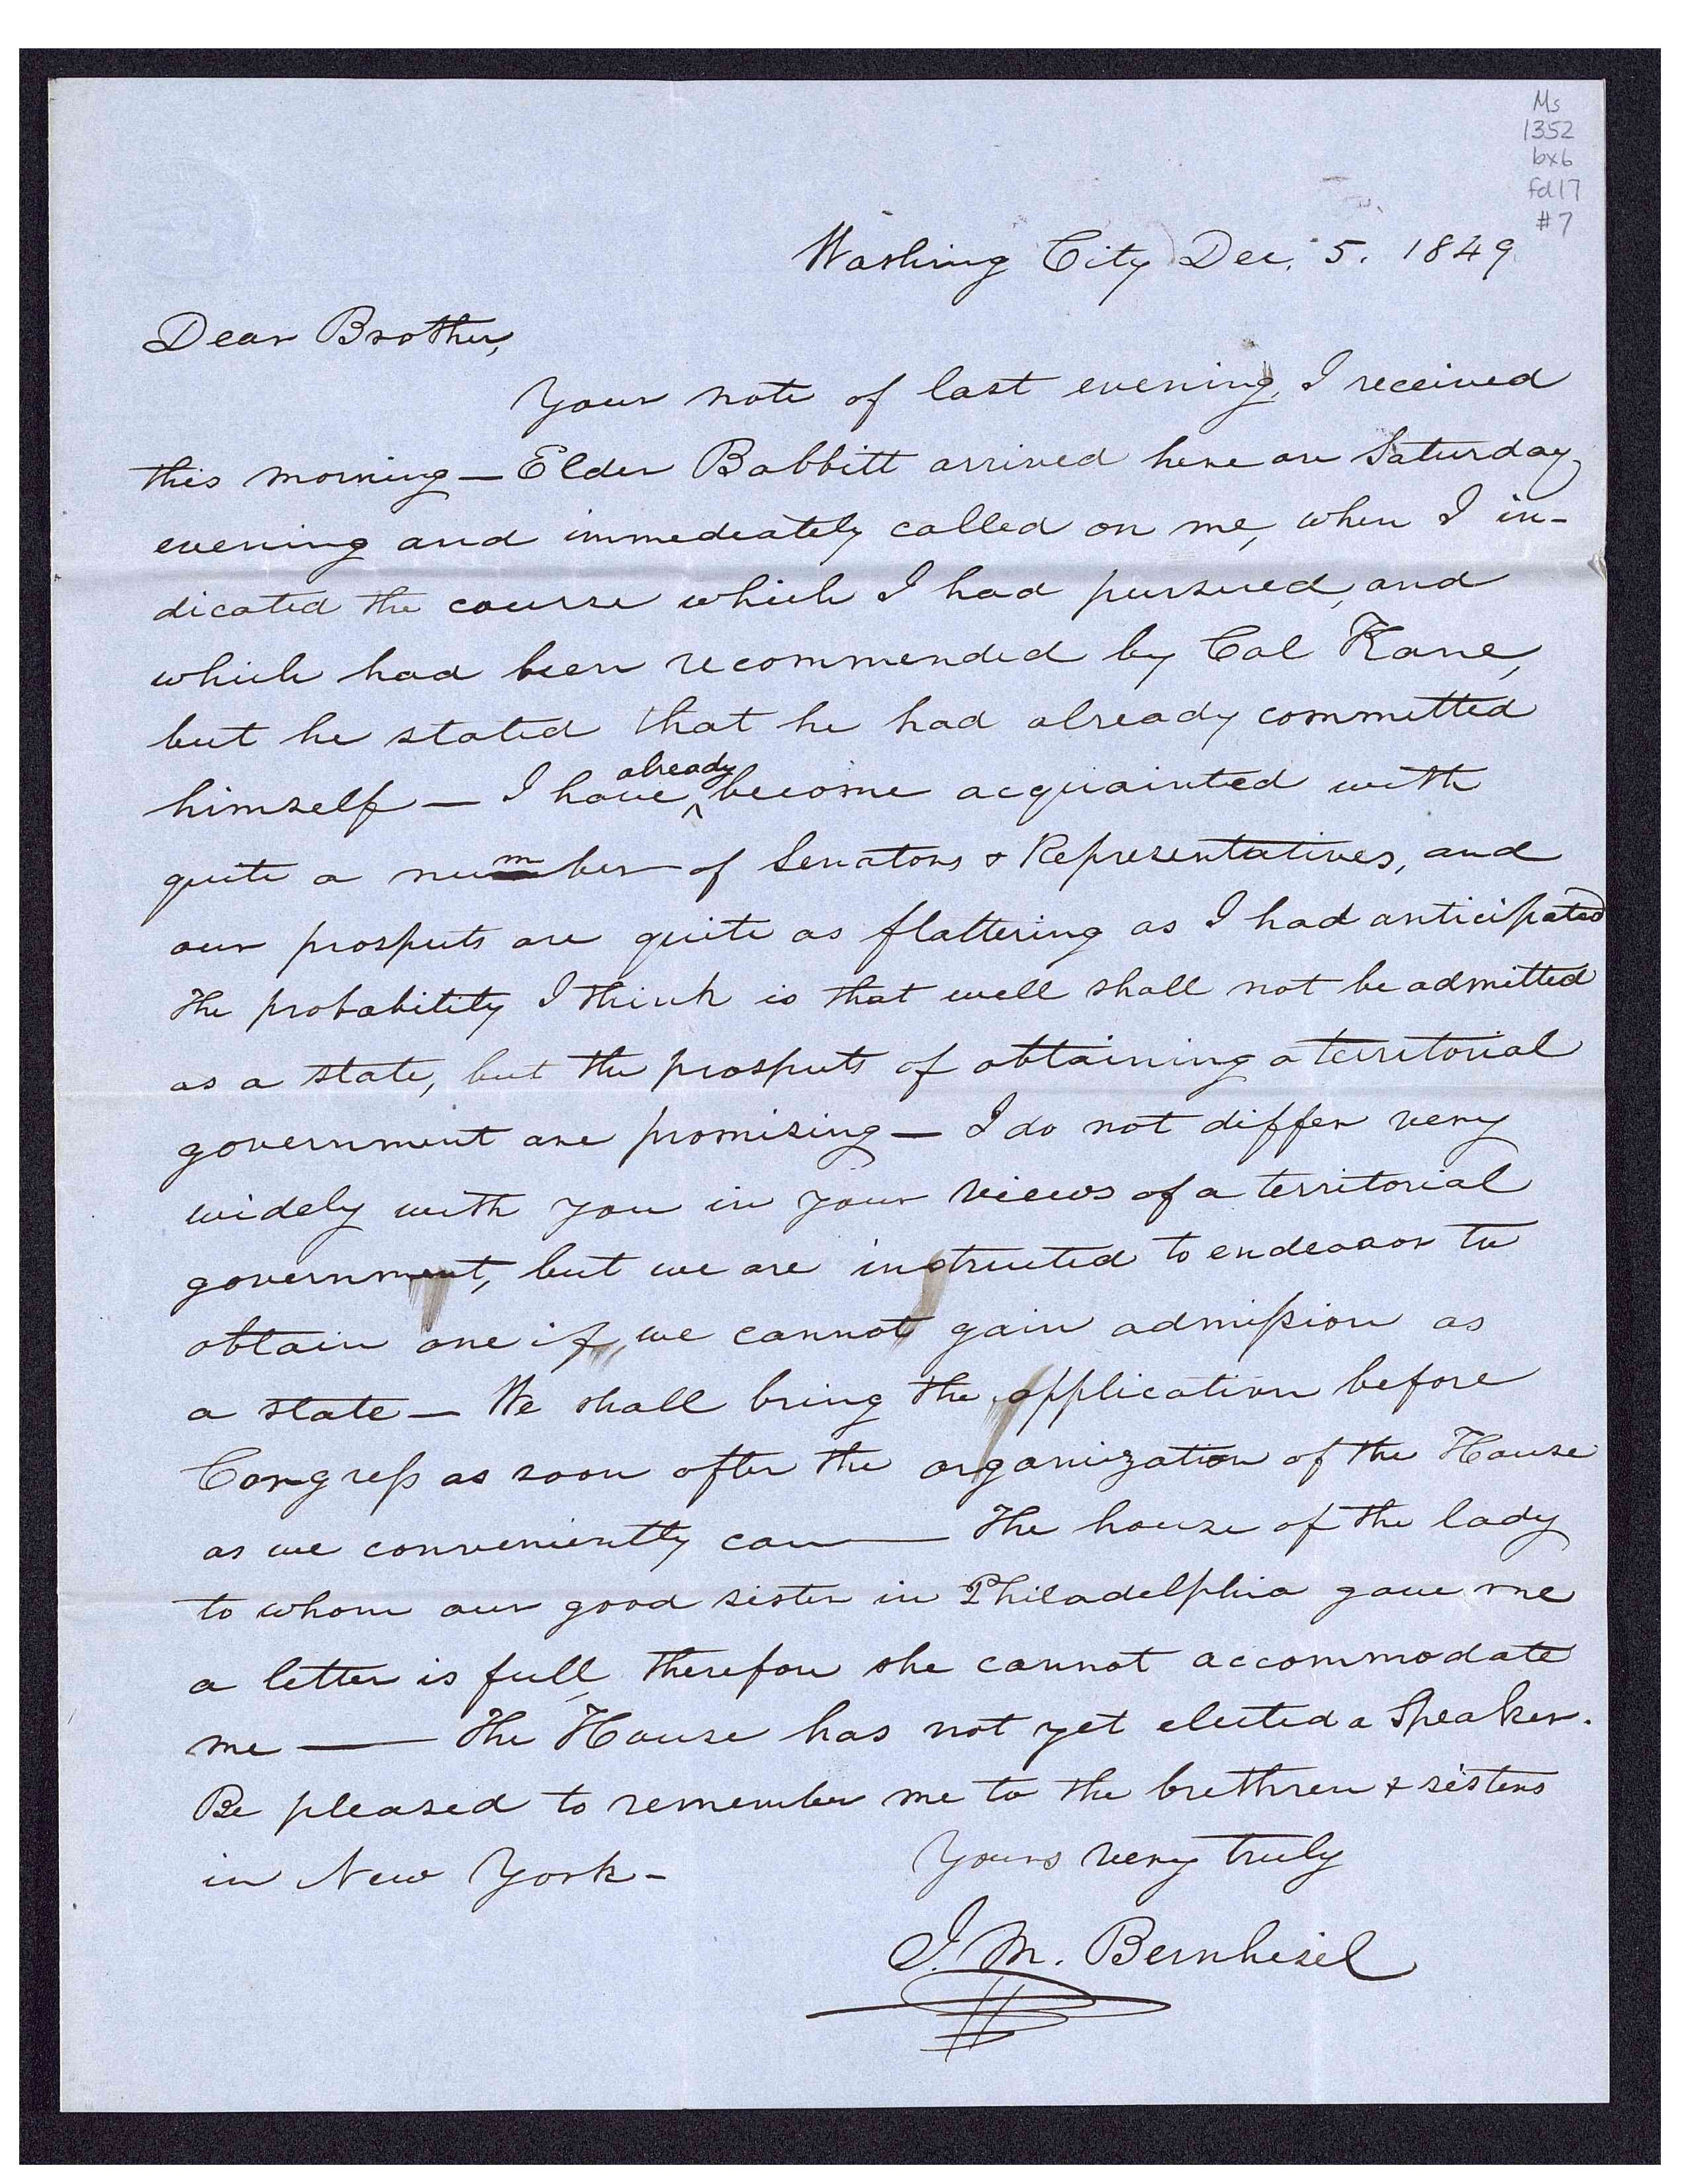 Ms
1352
bx6
fd17
#7
Washing City Dec. 5. 1849
Dear Brother,
Your note of last evening, I received
this morning — Elder Babbitt arrived here on Saturday
evening and immediately called on me, when I in-
dicated the course which I had pursued, and
which had been recommended by Col Kane,
but he stated that he had already committed
himself — I have already become acquainted with
quite a number of Senators & Representatives, and
our prospects are quite as flattering as I had anticipated
The probability I think is that well shall not be admitted
as a state, but the prospects of obtaining a territorial
government are promising — I do not differ very
widely with you in your views of a territorial
government, but we are instructed to endeavor to
obtain one if, we cannot gain admission as
a state — We shall bring the application before
Congress as soon after the organization of the House
as we conveniently can — The house of the lady
to whom our good sister in Philadelphia gave me
a letter is full, therefore she cannot accommodate
me — The House has not yet elected a Speaker.
Be pleased to remember me to the brethren & sisters
in New York -
Yours very truly
J. M. Bernhisel